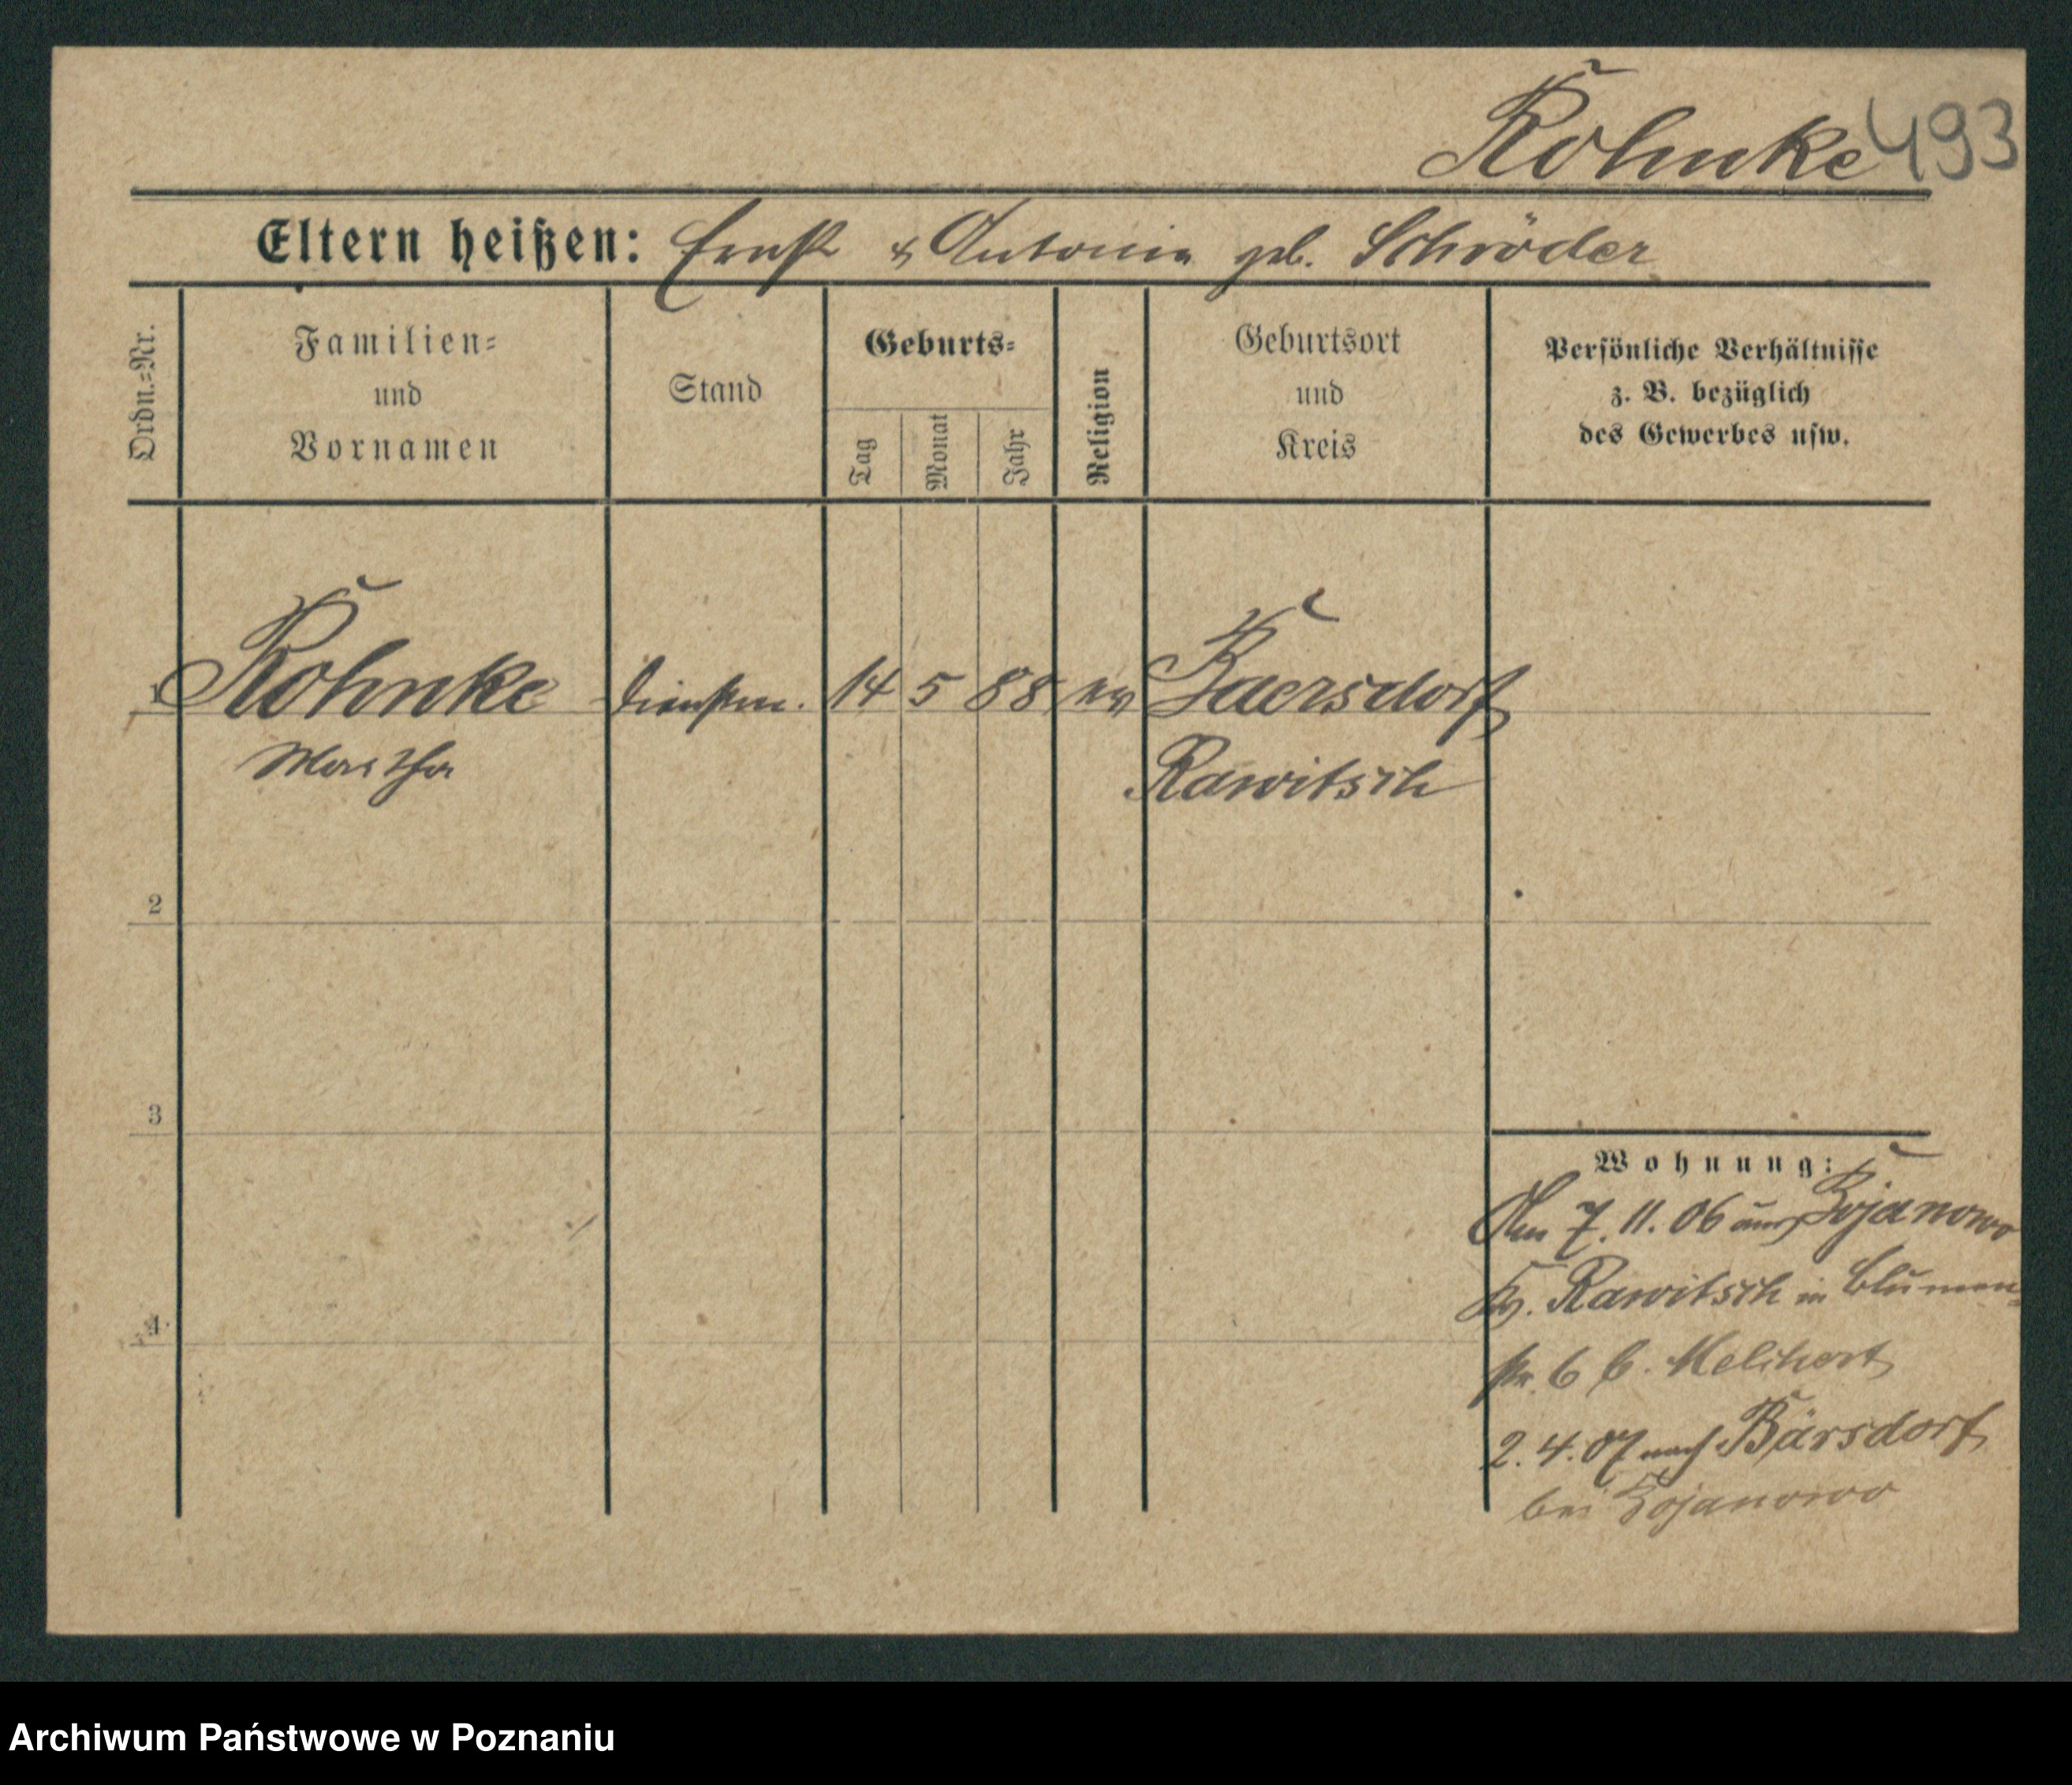 Kohnke 493
Eltern heißen: Ernst & Antonia geb. Schröder
Ordn.=Nr.
Familien=
und
Vornamen
Stand
Geburts=
Tag
Monat
Jahr
Religion
Geburtsort
und
Kreis
Persönliche Verhältnisse
z. B. bezüglich
des Gewerbes usw.
1 Kohnke Dienstm. 14 5 88 ev Baersdorf
Martha Rawitsch
2
3
4
Wohnung:
Am 7. 11. 06 aus Bojanowo
Kr. Rawitsch in Blumen-
str. 6 b. Melchert
2. 4. 07 nach Bärsdorf
bei Bojanowo
Archiwum Państwowe w Poznaniu